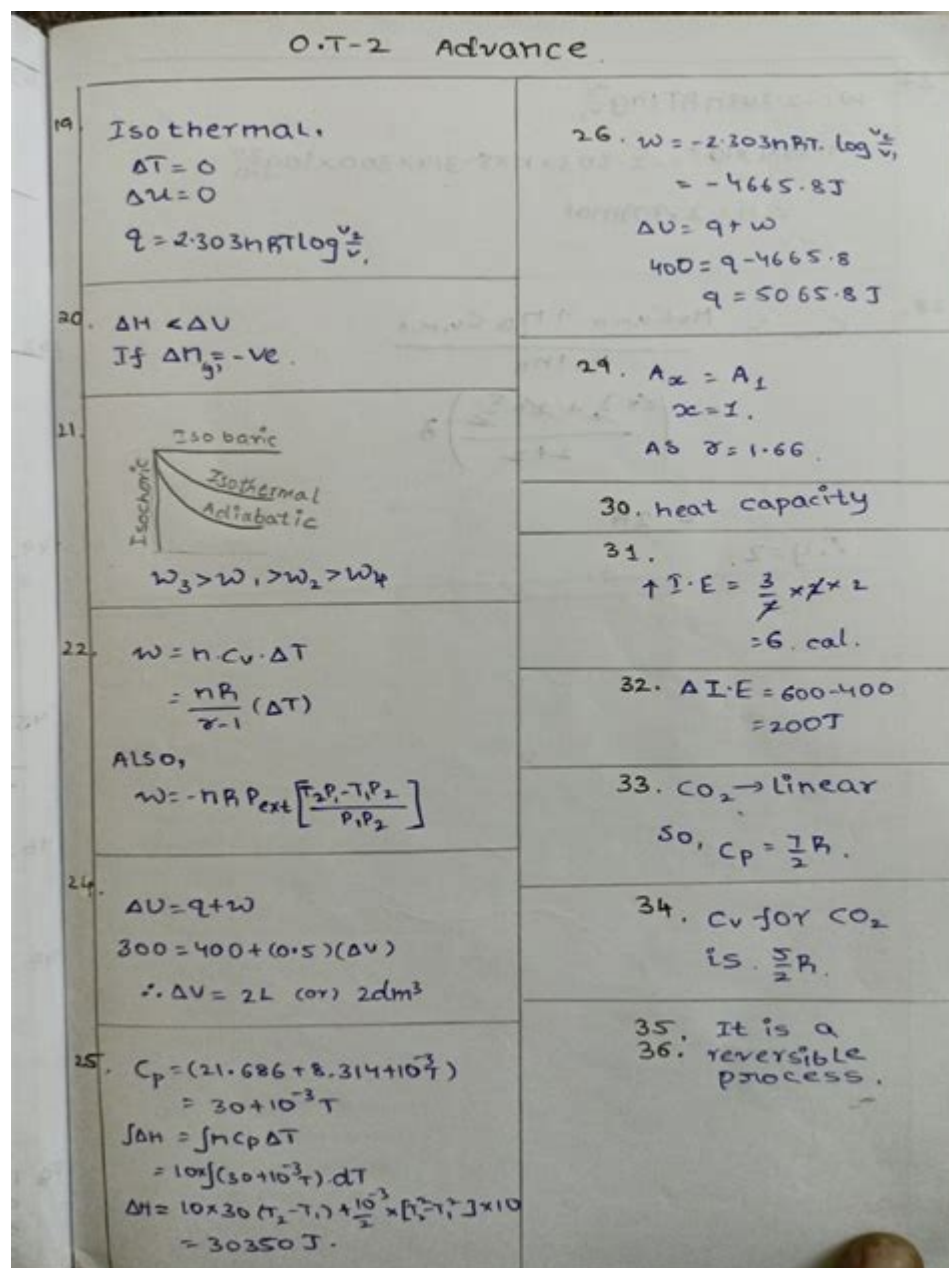 O.T-2 Advance
19. Isothermal.
ΔT = 0
ΔU = 0
q = 2.303nRTlog V₂/V₁
20. ΔH < ΔU
If Δng = -ve.
21.
Iso baric
Isochoric
Isothermal
Adiabatic
w₃>w₁>w₂>w₄
22. w = n.Cv.ΔT
= nR/γ-1 (ΔT)
Also,
w = -nR Pext [T₂P₁-T₁P₂/P₁P₂]
24.
ΔU = q+w
300 = 400+(0.5)(ΔV)
∴ ΔV = 2L (or) 2dm³
25. Cp = (21.686+8.314+10⁻³T)
= 30+10⁻³T
∫ΔH = ∫nCpΔT
= 10×∫(30+10⁻³T).dT
ΔH = 10×30(T₂-T₁)+10⁻³/2×[T₂²-T₁²]×10
= 30350 J.
26. w = -2.303nRT. log V₂/V₁
= -4665.8J
ΔU = q+w
400 = q-4665.8
q = 5065.8 J
29. Ax = A1
x = 1.
AS γ = 1.66.
30. heat capacity
31.
↑ I.E = 3/2 × 2 × 2
= 6. cal.
32. Δ I.E = 600-400
= 200J
33. CO₂ → linear
So, Cp = 7/2 R.
34. Cv for CO₂
is. 5/2 R.
35. It is a
36. reversible
process.